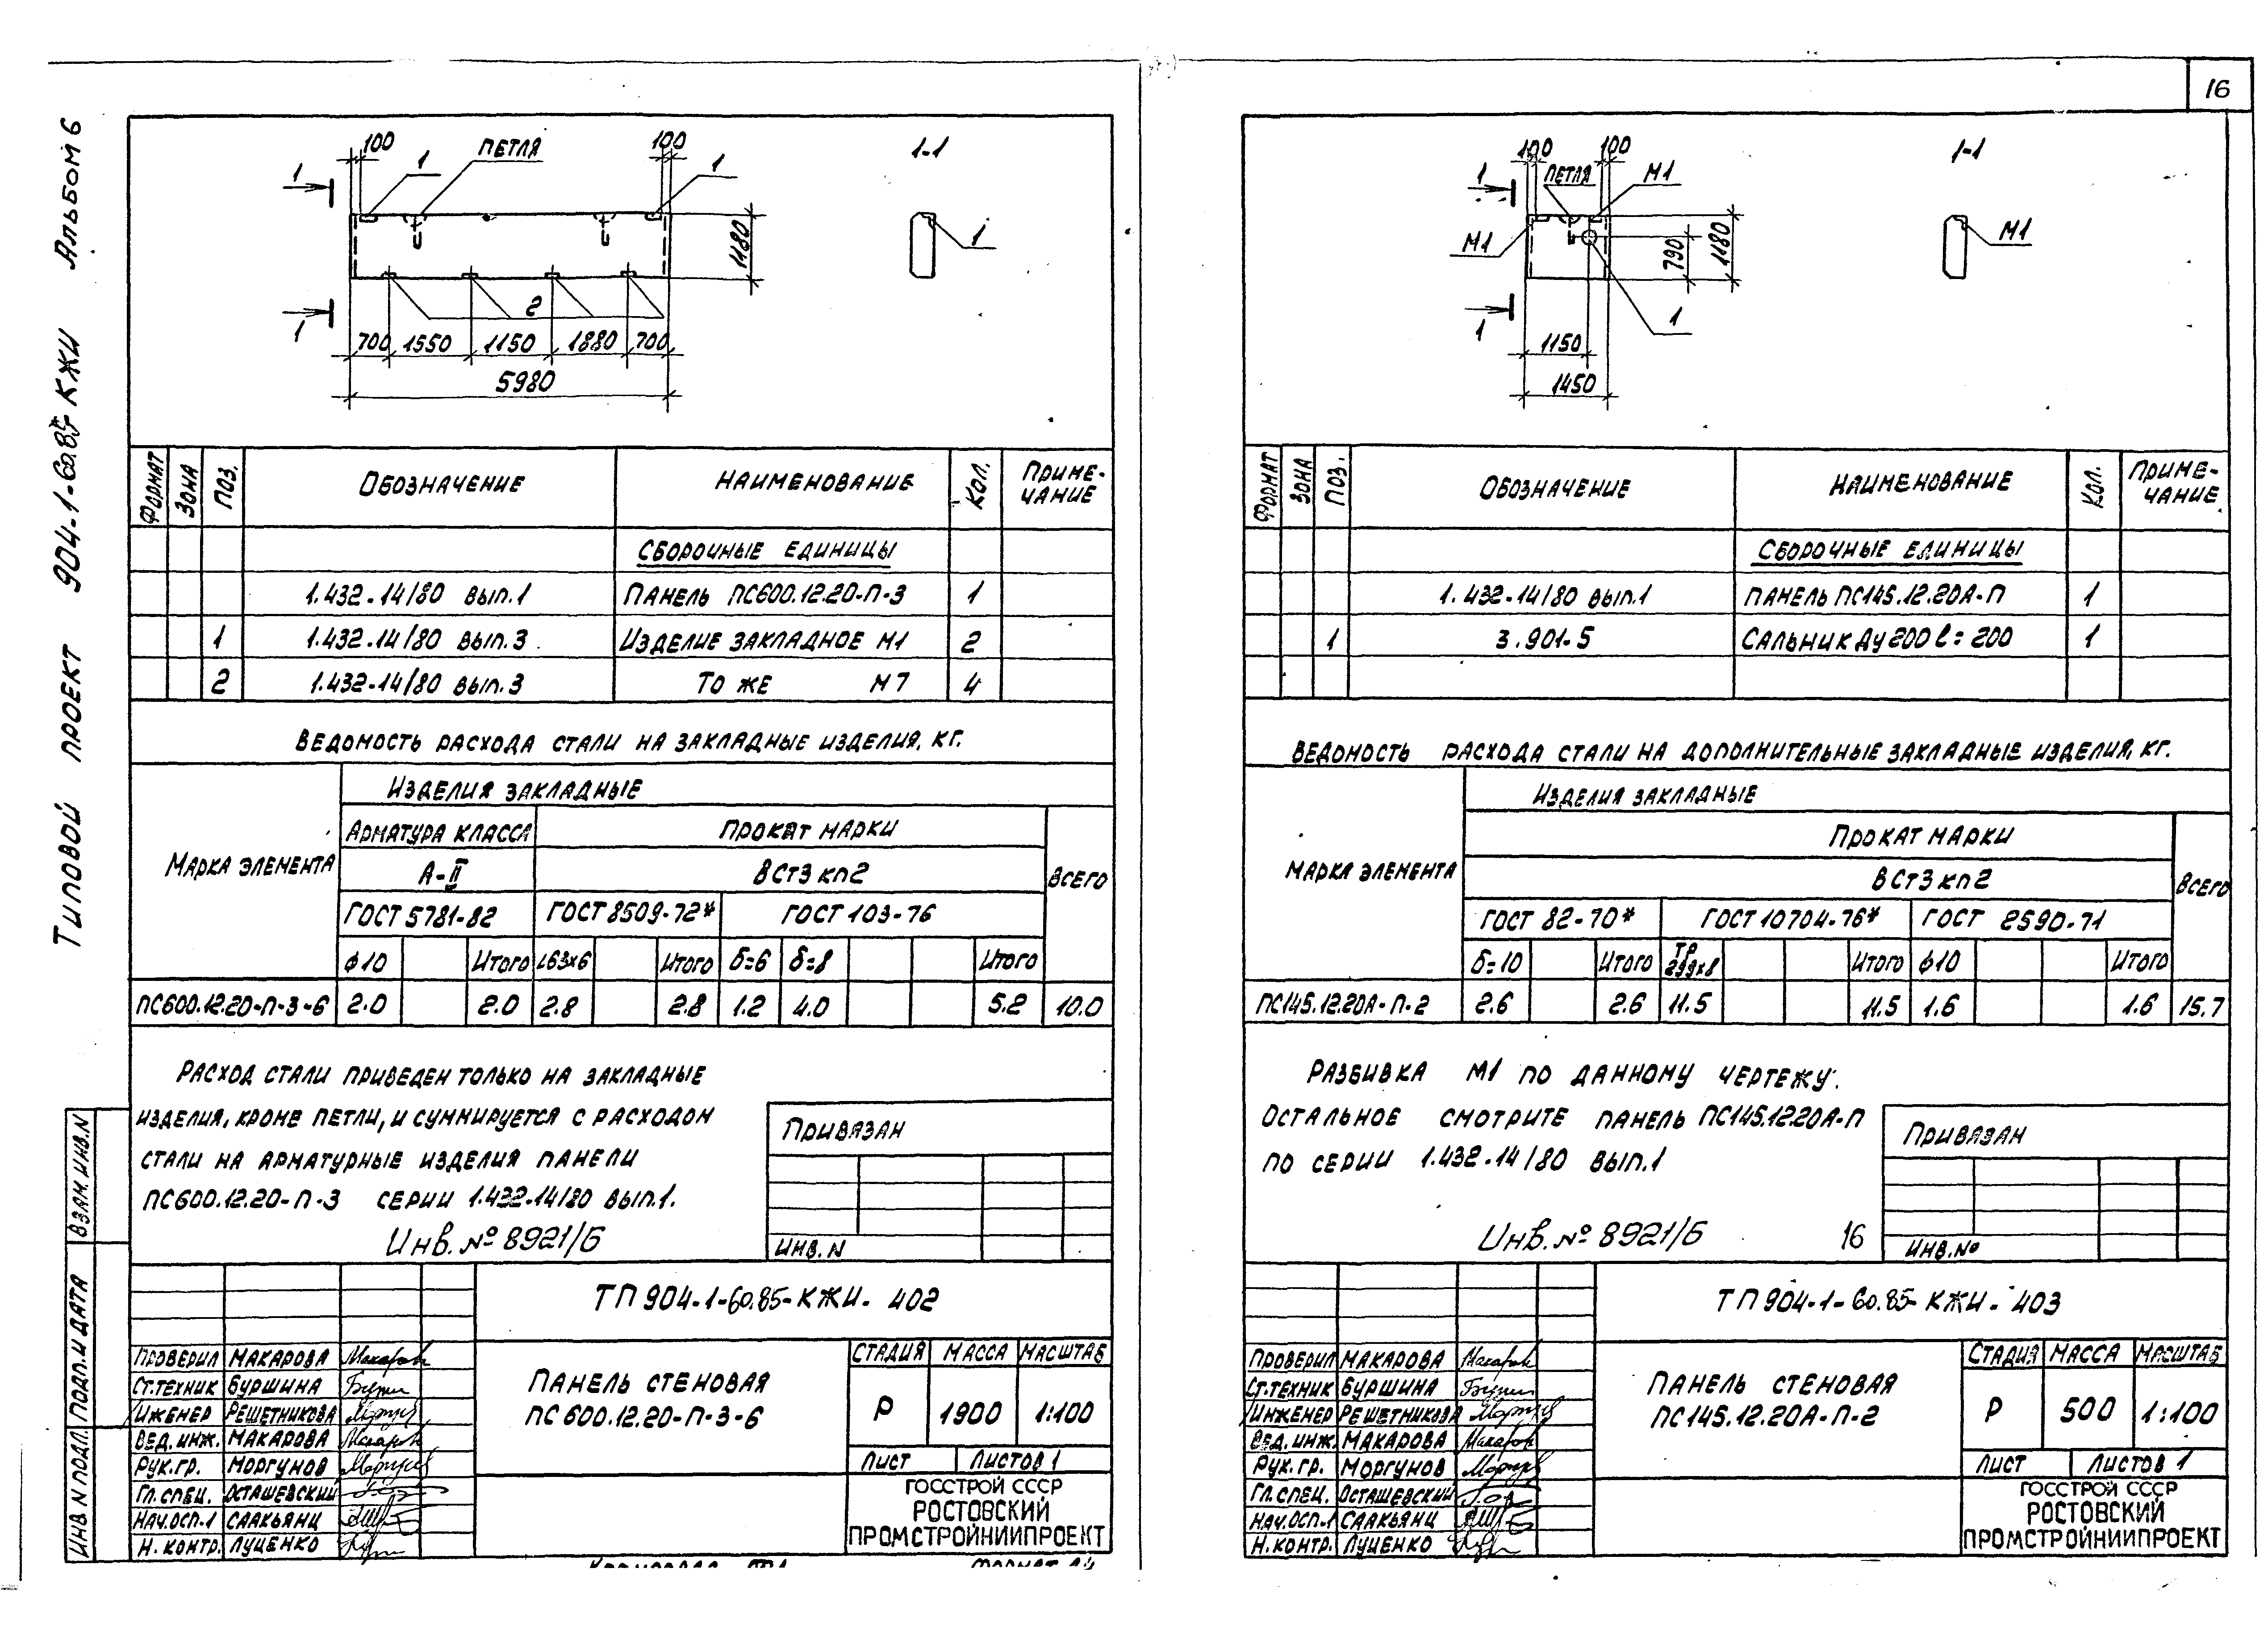 16
Типовой проект 904-1-60.85 КЖИ Альбом 6
ВЗАМ. ИНВ.N
ПОДП. И ДАТА
ИНВ N ПОДЛ.
100 1 ПЕТЛЯ 100 1 1-1
1
1180
1
2
1
700 1550 1150 1880 700
5980
ФОРМАТ ЗОНА ПОЗ. ОБОЗНАЧЕНИЕ НАИМЕНОВАНИЕ КОЛ. ПРИМЕ-
ЧАНИЕ
СБОРОЧНЫЕ ЕДИНИЦЫ
1.432-14/80 вып.1 ПАНЕЛЬ ПС600.12.20-П-3 1
1 1.432-14/80 вып.3 ИЗДЕЛИЕ ЗАКЛАДНОЕ М1 2
2 1.432-14/80 вып.3 ТО ЖЕ М7 4
ВЕДОМОСТЬ РАСХОДА СТАЛИ НА ЗАКЛАДНЫЕ ИЗДЕЛИЯ, КГ.
МАРКА ЭЛЕМЕНТА
ИЗДЕЛИЯ ЗАКЛАДНЫЕ
АРМАТУРА КЛАССА ПРОКАТ МАРКИ
А-II ВСт3 кп2 ВСЕГО
ГОСТ 5781-82 ГОСТ 8509-72* ГОСТ 103-76
ф10 Итого L63x6 Итого δ=6 δ=8 Итого
ПС600.12.20-П-3-6 2.0 2.0 2.8 2.8 1.2 4.0 5.2 10.0
РАСХОД СТАЛИ ПРИВЕДЕН ТОЛЬКО НА ЗАКЛАДНЫЕ
ИЗДЕЛИЯ, КРОМЕ ПЕТЛИ, И СУММИРУЕТСЯ С РАСХОДОМ
СТАЛИ НА АРМАТУРНЫЕ ИЗДЕЛИЯ ПАНЕЛИ
ПС600.12.20-П-3 СЕРИИ 1.432-14/80 вып.1.
Инв. № 8921/6
ПРИВЯЗАН
ИНВ. N
ТП 904-1-60.85-КЖИ- 402
ПРОВЕРИЛ МАКАРОВА
СТ.ТЕХНИК БУРШИНА
ИЖЕНЕР РЕШЕТНИКОВА
ВЕД. ИНЖ. МАКАРОВА
РУК.ГР. МОРГУНОВ
ГЛ. СПЕЦ. ОСТАШЕВСКИЙ
НАЧ.ОСП-1 СААКЬЯНЦ
Н. КОНТР. ЛУЦЕНКО
ПАНЕЛЬ СТЕНОВАЯ
ПС 600.12.20-П-3-6
СТАДИЯ МАССА МАСШТАБ
Р 1900 1:100
ЛИСТ ЛИСТОВ 1
ГОССТРОЙ СССР
РОСТОВСКИЙ
ПРОМСТРОЙНИИПРОЕКТ
100 100 1-1
ПЕТЛЯ М1
1
М1
790 1180
М1
1
1
1150
1450
ФОРМАТ ЗОНА ПОЗ. ОБОЗНАЧЕНИЕ НАИМЕНОВАНИЕ КОЛ. ПРИМЕ-
ЧАНИЕ
СБОРОЧНЫЕ ЕДИНИЦЫ
1.432-14/80 вып.1 ПАНЕЛЬ ПС145.12.20А-П 1
1 3.901-5 САЛЬНИК Ду 200 l=200 1
ВЕДОМОСТЬ РАСХОДА СТАЛИ НА ДОПОЛНИТЕЛЬНЫЕ ЗАКЛАДНЫЕ ИЗДЕЛИЯ, КГ.
МАРКА ЭЛЕМЕНТА
ИЗДЕЛИЯ ЗАКЛАДНЫЕ
ПРОКАТ МАРКИ
ВСт3 кп2 ВСЕГО
ГОСТ 82-70* ГОСТ 10704-76* ГОСТ 2590-71
δ=10 Итого ТР 299x8 Итого ф10 Итого
ПС145.12.20А-П-2 2.6 2.6 11.5 11.5 1.6 1.6 15.7
РАЗБИВКА М1 ПО ДАННОМУ ЧЕРТЕЖУ.
ОСТАЛЬНОЕ СМОТРИТЕ ПАНЕЛЬ ПС145.12.20А-П
ПО СЕРИИ 1.432-14/80 вып.1
Инв. № 8921/6 16
ПРИВЯЗАН
ИНВ. №
ТП 904-1-60.85-КЖИ- 403
ПРОВЕРИЛ МАКАРОВА
СТ.ТЕХНИК БУРШИНА
ИНЖЕНЕР РЕШЕТНИКОВА
ВЕД. ИНЖ. МАКАРОВА
РУК. ГР. МОРГУНОВ
ГЛ. СПЕЦ. ОСТАШЕВСКИЙ
НАЧ.ОСП-1 СААКЬЯНЦ
Н. КОНТР. ЛУЦЕНКО
ПАНЕЛЬ СТЕНОВАЯ
ПС145.12.20А-П-2
СТАДИЯ МАССА МАСШТАБ
Р 500 1:100
ЛИСТ ЛИСТОВ 1
ГОССТРОЙ СССР
РОСТОВСКИЙ
ПРОМСТРОЙНИИПРОЕКТ